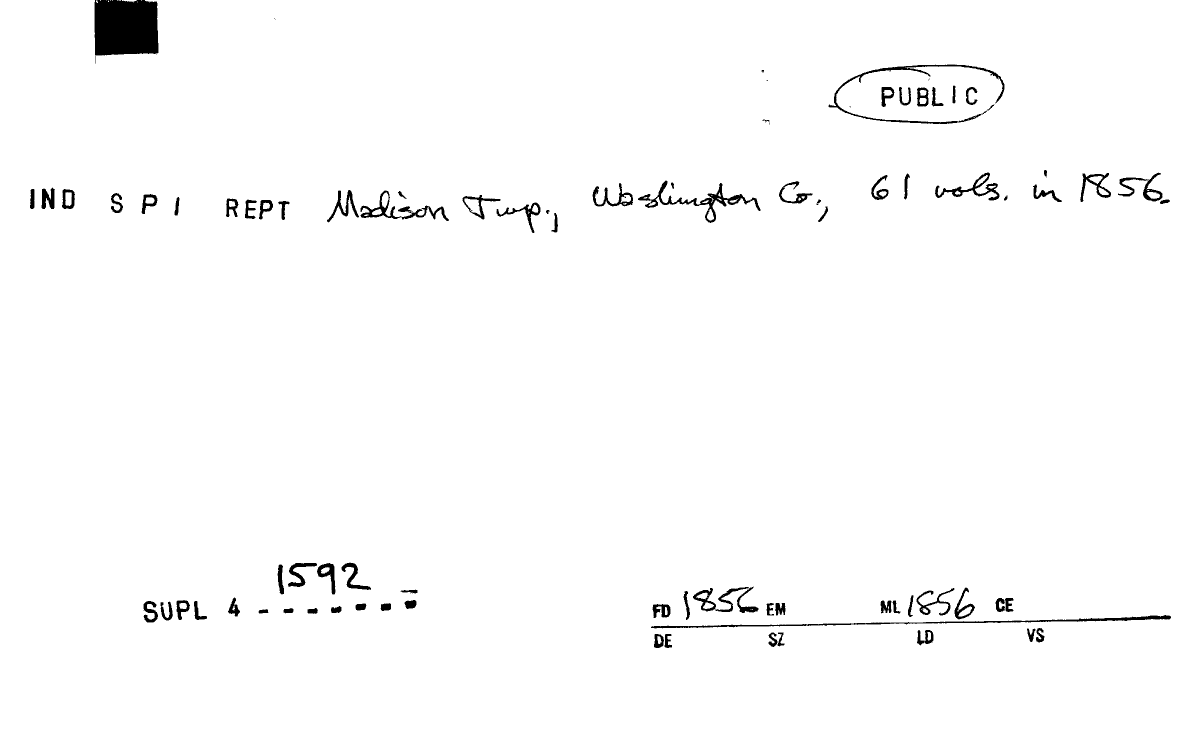 PUBLIC
IND SPI REPT Madison Twp., Washington Co., 61 vols. in 1856.
1592
SUPL 4 - - - - - - -
FD 1856 EM ML 1856 CE
DE SZ LD VS